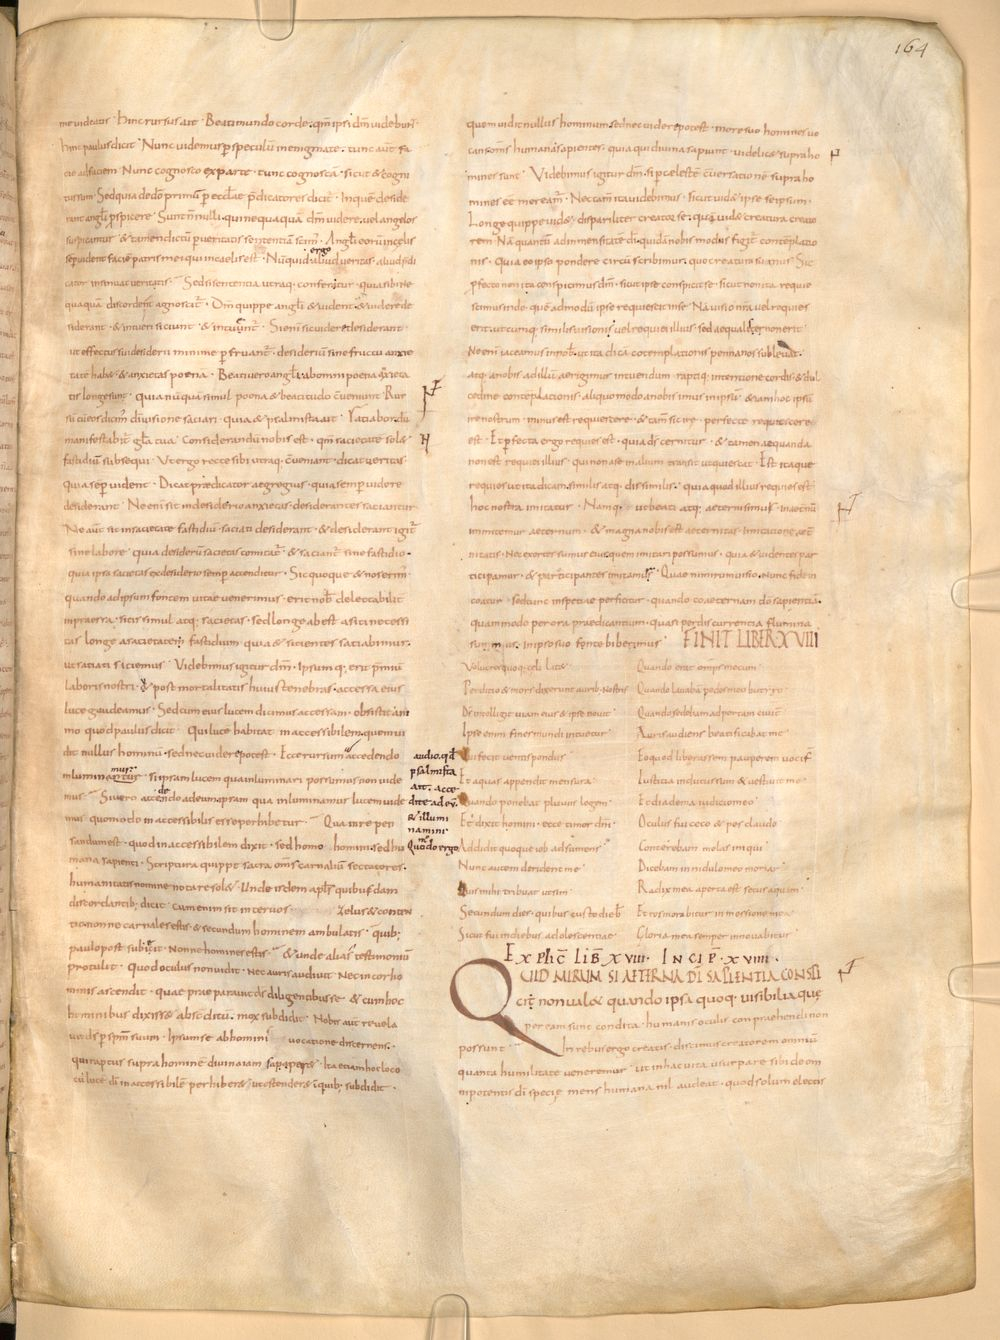 164
me videatis · hinc rursus ait · Beati mundo corde · qm̄ ipsi dm̄ videbun̄t ·
hinc paulus dicit · Nunc videmus p speculū in enigmate · tunc aut̄ fa
cie ad faciem · Nunc cognosco exparte · tunc cognoscā · sicut & cogni
tus sum · Sed quia de dō primum p eccl̄ae p̄dicatores dicit̄ · Inquē deside
rant angl̄i p̄spicere · Sunt n̄ nulli qui nequaquā dm̄ videre vel angelos
suspicantur & tamen dictū p veritatis sententiā scim̄ · Angl̄i eorū in celis
sep vident faciē patris mei qui in caelis est · Nūquid ergo aliud veritas · aliud p̄di
cator insonuat veritatis · Sed si sententia utraq; confertur · quia sibi ne
quaquā discordent agnoscit̄ · Dm̄ quippe angl̄i & vident & videre de
siderant · & intueri sitiunt · & intuent̄ · Si enī sic videre desiderant
ut effectu sui desiderii minime p fruant̄ · desideriū sine fructu anxie
tatē habet & anxietas poenā · Beati vero angl̄i ab omni poena
tis longe sunt · quia nūquā simul poena & beatitudo cōveniunt · Rur
sū cū eos dicim̄ dī visione satiari · quia & psalmista ait · Satiabor · dū
manifestabit̄ gl̄a tua · Considerandū nobis est · qm̄ satietatē sol&
fastidiū subsequi · Ut ergo recte sibi utraq; cōveniant · dicat veritas
quia sep vident · Dicat praedicator aegregius · quia semp videre
desiderant · Ne enī sit in desiderio anxietas · desiderantes satiantur
Ne aut̄ sit in satietate fastidiū · satiati desiderant · & desiderant igit̄
sine labore · quia desideriū satietas comitat̄ · & satiant̄ sine fastidio ·
quia ipsa satietas ex desiderio semp accenditur · Sic quoque & nos erim̄
quando ad ipsum fontem vitae venerimus · erit nob̄ delectabilit̄
impressa · sitis simul atq; satietas · sed longe abest a siti necessi
tas longe a satietate fastidium · quia & sitientes satiabimur ·
ut satiati sitiemus · Videbimus igitur dm̄ · Ipsum q; erit p̄miū
laboris nostri · & post mortalitatis huius tenebras · accessa eius
luce gaudeamus · Sed cum eius lucem dicimus accessam · obsistit ani
mo quod paulus dicit · Qui luce habitat in accessibilem · quem vi
dit nullus hominū · sed nec videre potest · Ecce rursum accedendo
inluminamur · si ipsam lucem qua inluminari possimus non vide
mus · Si vero accedendo ad eum ipsam qua inluminamus lucem vide
mus quomodo in accessibilis esse perhibetur · Qua in re pen
sandum est · quod in accessibilem dixit · sed homo homini sed hu
mana sapienti · Scriptura quippe sacra om̄s carnaliū sectatores ·
humanitatis nomine notare sol& · Unde isdem apl̄s quibusdam
discordantib; dicit · cum enim sit inter vos zelus & conten
tio nonne carnales estis · & secundum hominem ambulatis · quib;
paulo post subicit · Nonne homines estis · & unde aliās testimoniū
protulit · Quod oculus non vidit · Nec auris audivit · Nec in cor ho
minis ascendit · quae praeparavit ds diligentibus se · & cum hoc
hominibus dixiss& absc ditū · mox subdidit · Nobis aut̄ revela
vit ds p spm̄ suum · Ipsum se ab homini vocatione discernens ·
qui raptus supra hominē divina iam saperet · Ita etiam hoc loco
cū lucē dī in accessibilē perhiberet · ut ostenderet quib; subdidit ·
audio qd
psalmista
ait · acce
dite ad eū
& illumi
namini ·
Quomodo ergo
quem vidit nullus hominum sed nec videre potest · more suo homines vo
cans om̄s humana sapientes · quia qui divina sapiunt · videlicet supra ho
mines sunt · Videbimus igitur dm̄ · si p celestē cōversationē supra ho
mines ee meream̄ · Nec tam̄ ita videbimus · sicut videt ipse seipsum ·
Longe quippe videt dispariliter creator se · quā videt creatura creato
rem · Nā quantū ad inmensitatē dī · quidā nobis modus figit̄ contēplatio
nis · Quia eo ipso pondere circū scribimur · quo creatura sumus · Sic
p̄fecto non ita conspicimus dm̄ · sicut ipse conspicit se · sicut non ita requie
scimus in dō · quē admodū ipse requiescit in se · Nā visio nr̄a vel requies
erit utcumq; similis visionis vel requiei illius · sed aequalis non erit ·
Ne enī iaceamus in nob̄ · ut ita dicā cotemplationis penna nos sublevat ·
atq; a nobis ad illū aerigimur intuendum · raptiq; intentione cordis & dul
cedine contēplationis · aliquo modo a nobis imus in ipsū · & iam hoc ipsū
ire nostrum · minus est requiescere · & tam̄ sic ire · perfecte requiescere
est · Et p̄fecta ergo requies est · quia ds cernitur · & tamen aequanda
non est requiei illius · qui non a se in alium transit ut quiescat · Est itaque
requies ut ita dicam similis atq; dissimilis · quia quod illius requies est
hoc nostra imitatur · Namq; ut beati atq; aeterni simus · in aeternū
imitemur aeternum · & magna nobis est aeternitas · imitatio aet̄
nitatis · Nec exortes sumus eius quem imitari possumus · quia & videntes par
ticipamur · & participantes imitamur · Quae nimirum visio · Nunc fide in
coatur · sed tunc in specie perficitur · quando coaeternam dō sapientiā ·
quam modo per ora praedicantium · quasi per discurrentia flumina
sumimus · in ipso suo fonte bibemus · FINIT LIBER XVIII
Volucres quoq; cęli lat&
Perditio & mors dixerunt aurib; Nostris
Ds intelligit viam eius & ipse novit
Ipse enim fines mundi intuetur
Qui fecit ventis pondus
Et aquas appendit mensura
Quando ponebat pluviis legem
Et dixit homini · ecce timor dnī
Addidit quoque iob adsumens
Nunc autem derident me
Quis mihi tribuat ut sim
Secundum dies · quibus custodieb̄
Sicut fui in diebus adolescentiae
Quando erat omp̄s mecum
Quando lavabā pedes meo butyro
Quando sedebam ad portam civit̄
Auris audiens beatificabat me
Eo quod liberassem pauperem vocif̄
Iustitia indutus sum & vestivit me
Et diadema iudicio meo
Oculus fui ceco & pes claudo
Conterebam molas iniqui
Dicebam in nidulo meo moriar
Radix mea aperta est secus aquam
Et ros morabitur in messione mea
Gloria mea semper innovabitur
Explic̄ LIB̄ XVIII · INCIP̄ · XVIIII ·
QUID MIRUM SI AETERNA DI SAPIENTIA CONSPI
cit̄ non val& quando ipsa quoq; visibilia quę
per eam sunt condita · humanis oculis conpraehendi non
possunt · In rebus ergo creatis · discimus creatorem omniū
quanta humilitate veneremur · ut in hac vita usurpare sibi de om
nipotentis dī specię mens humana nil audeat · quod solum electis